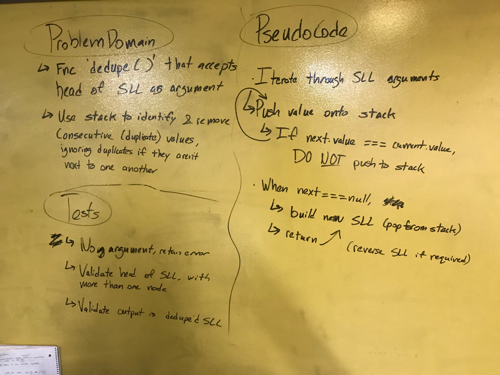 Problem Domain
↳ Fnc 'dedupe()' that accepts
head of SLL as argument
↳ Use stack to identify & remove
consecutive (duplicate) values,
ignoring duplicates if they aren't
next to one another
Tests
↳ No argument, return error
↳ Validate head of SLL, with
more than one node
↳ Validate output is dedupe'd SLL
PseudoCode
· Iterate through SLL arguments
↳ Push value onto stack
↳ If next.value === current.value,
DO NOT push to stack
· When next === null,
↳ build new SLL (pop from stack)
↳ return
(reverse SLL if required)